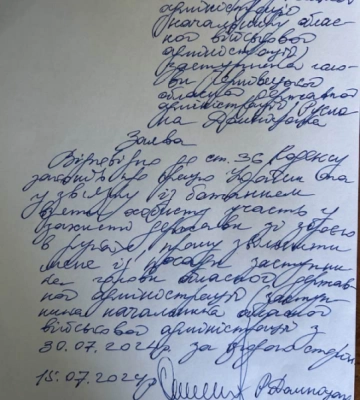 адміністрації
начальника облас-
ної військової
адміністрації
заступника голо-
ви Чернівецької
обласної державної
адміністрації Русла-
на Запаранюка
Заява
Відповідно до ст. 36 Кодексу
законів про працю України
у зв'язку із бажанням
взяти особисту участь у
захисті держави зі зброєю
в руках прошу звільнити
мене із посади заступни-
ка голови обласної держав-
ної адміністрації заступ-
ника начальника обласної
військової адміністрації з
30.07.2024р. за згодою сторін
15.07.2024р